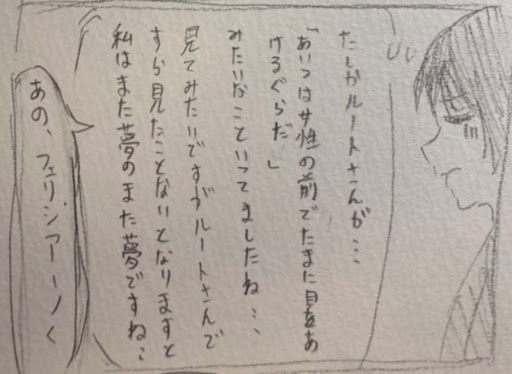 たしかルートさんが…
「あいつは女性の前でたまに目をあ
けるぐらだ」
みたいなこといってましたね…
見てみたいですがルートさんで
すら見たことないとなりますと
私はまた夢のまた夢ですね…
あの、フェリシアーノく